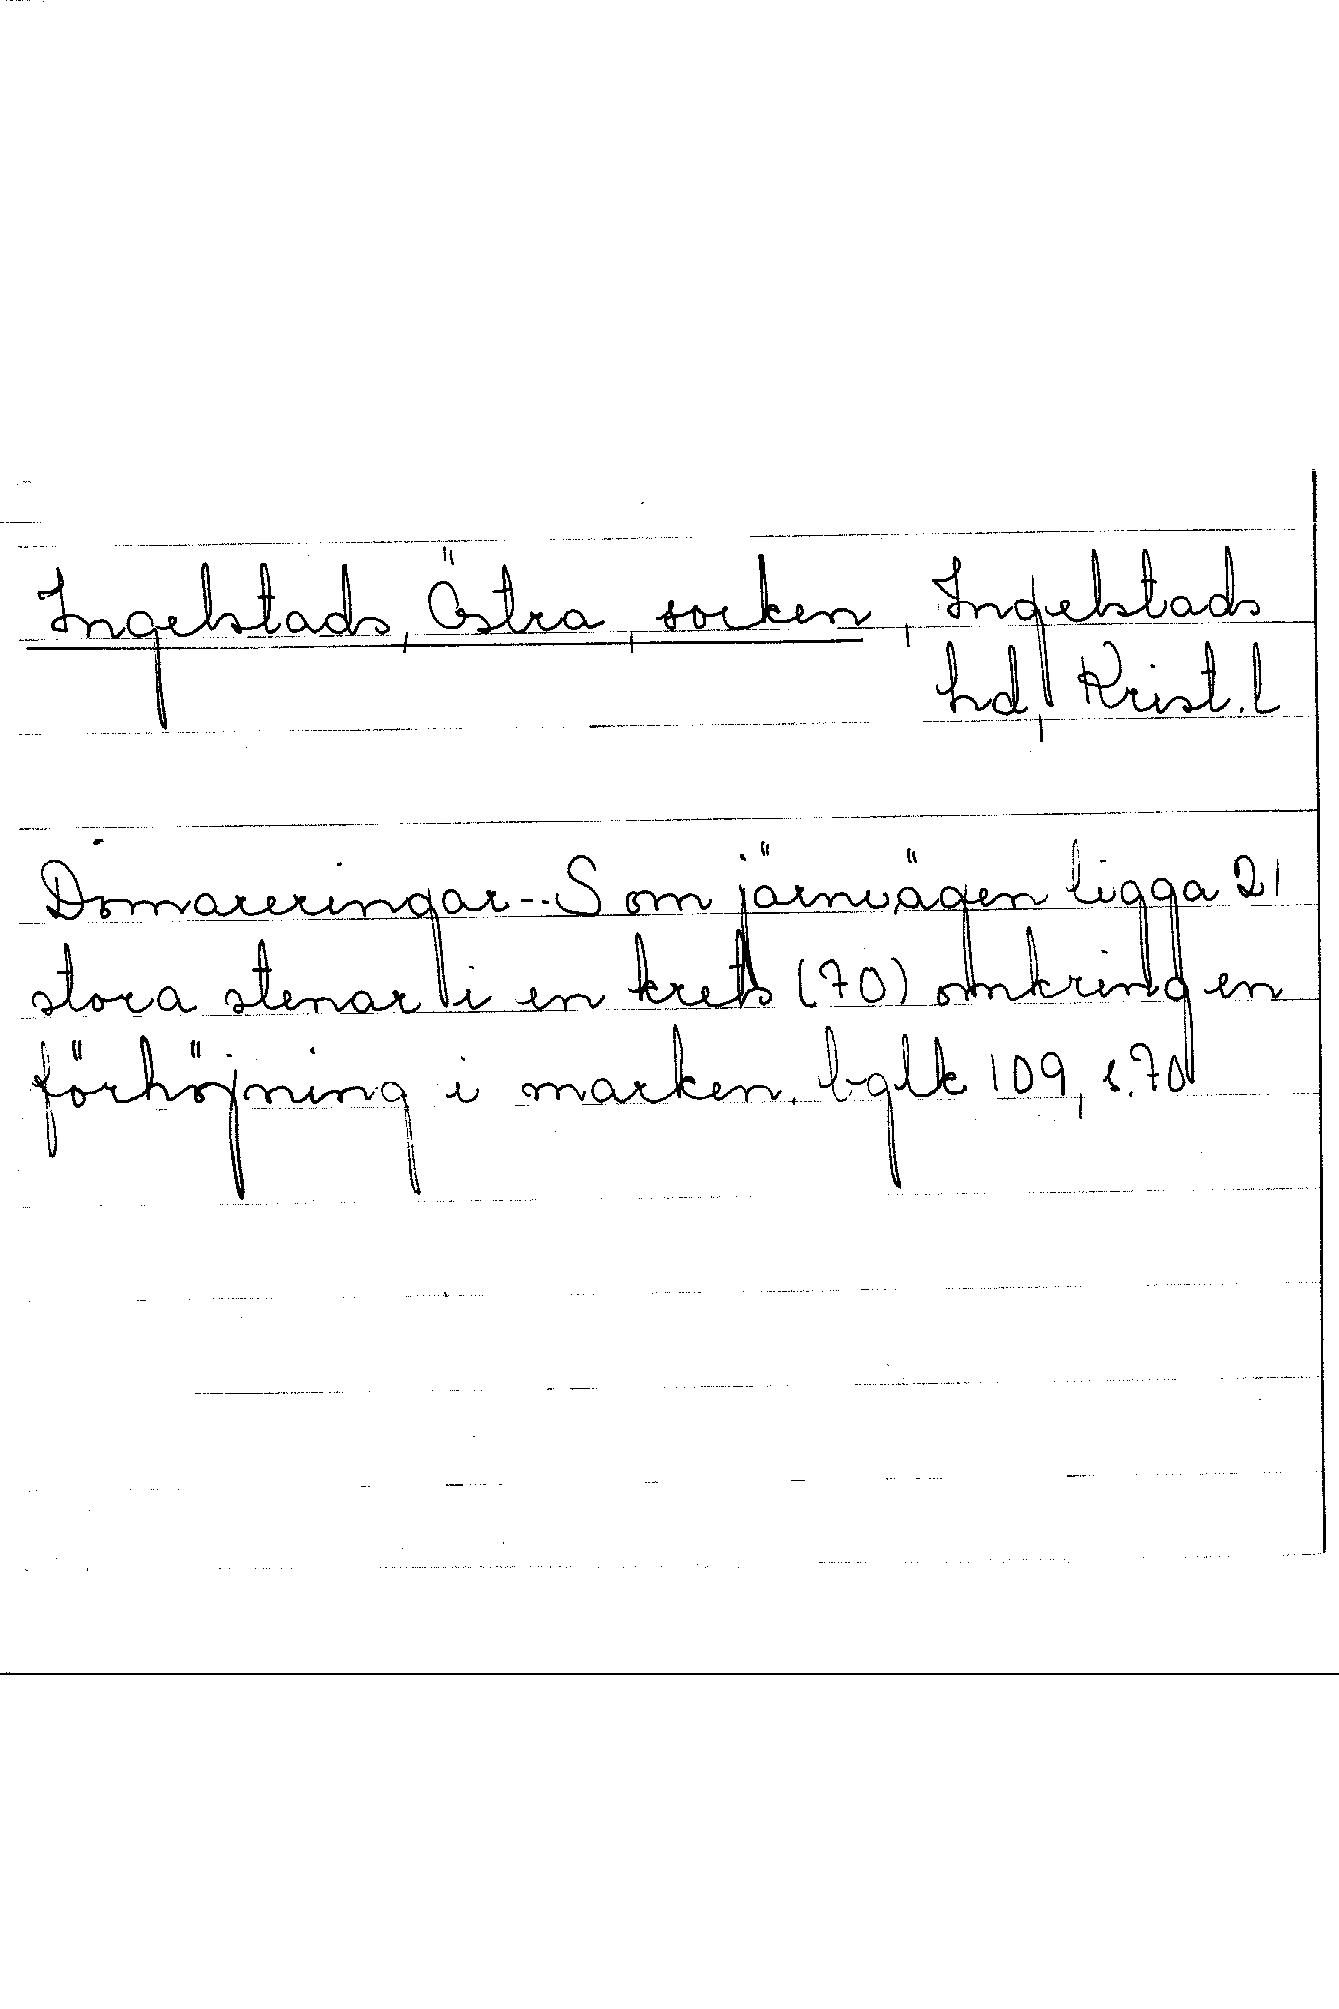 Ingelstads, Östra, socken, Ingelstads
hd, Krist. l
Domareringar--S om järnvägen ligga 21
stora stenar i en krets (70) omkring en
förhöjning i marken. bglk 109, s.70